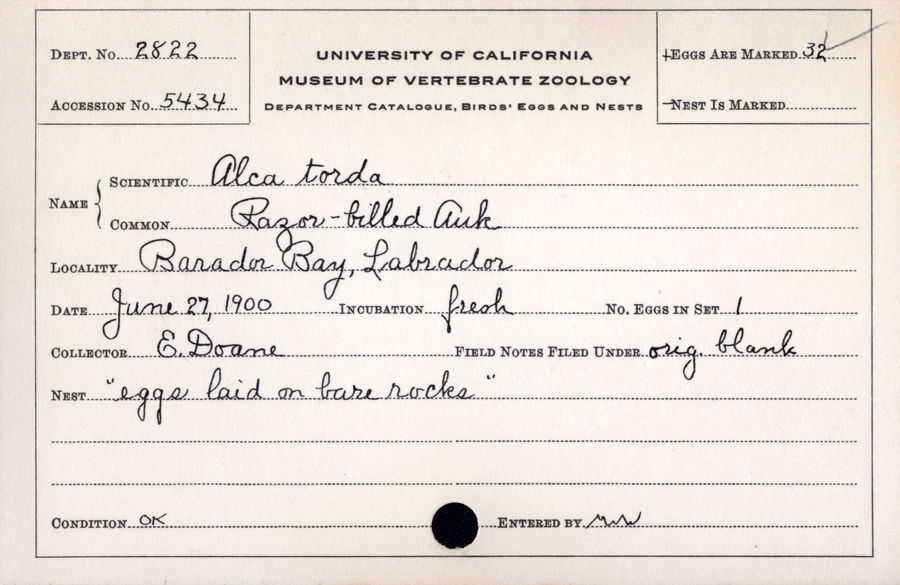 DEPT. No. 2822
ACCESSION No. 5434
UNIVERSITY OF CALIFORNIA
MUSEUM OF VERTEBRATE ZOOLOGY
DEPARTMENT CATALOGUE, BIRDS' EGGS AND NESTS
EGGS ARE MARKED 32
NEST IS MARKED
NAME
SCIENTIFIC Alca torda
COMMON Razor-billed Auk
LOCALITY Barador Bay, Labrador
DATE June 27, 1900 INCUBATION fresh NO. EGGS IN SET 1
COLLECTOR E. Doane FIELD NOTES FILED UNDER orig. blank
NEST "eggs laid on bare rocks"
CONDITION OK ENTERED BY